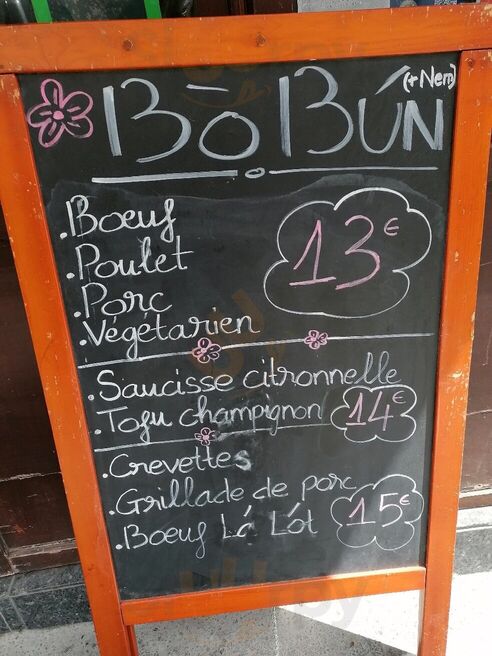 BōBÚN (+ Nem)
.Boeuf
.Poulet
13€
.Porc
.Végétarien
.Saucisse citronnelle
.Tofu champignon 14€
.Crevettes
.Grillade de porc
.Boeuf Lá Lót 15€